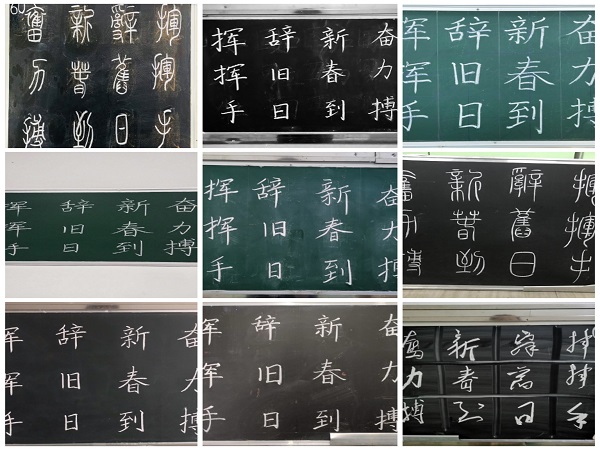 60
揮揮手
辭舊日
新春到
奮力搏
挥挥手
辞旧日
新春到
奋力搏
挥挥手
辞旧日
新春到
奋力搏
挥挥手
辞旧日
新春到
奋力搏
挥挥手
辞旧日
新春到
奋力搏
揮揮手
辭舊日
新春到
奮力搏
挥挥手
辞旧日
新春到
奋力搏
挥挥手
辞旧日
新春到
奋力搏
挥挥手
辞舊日
新春到
奮力搏